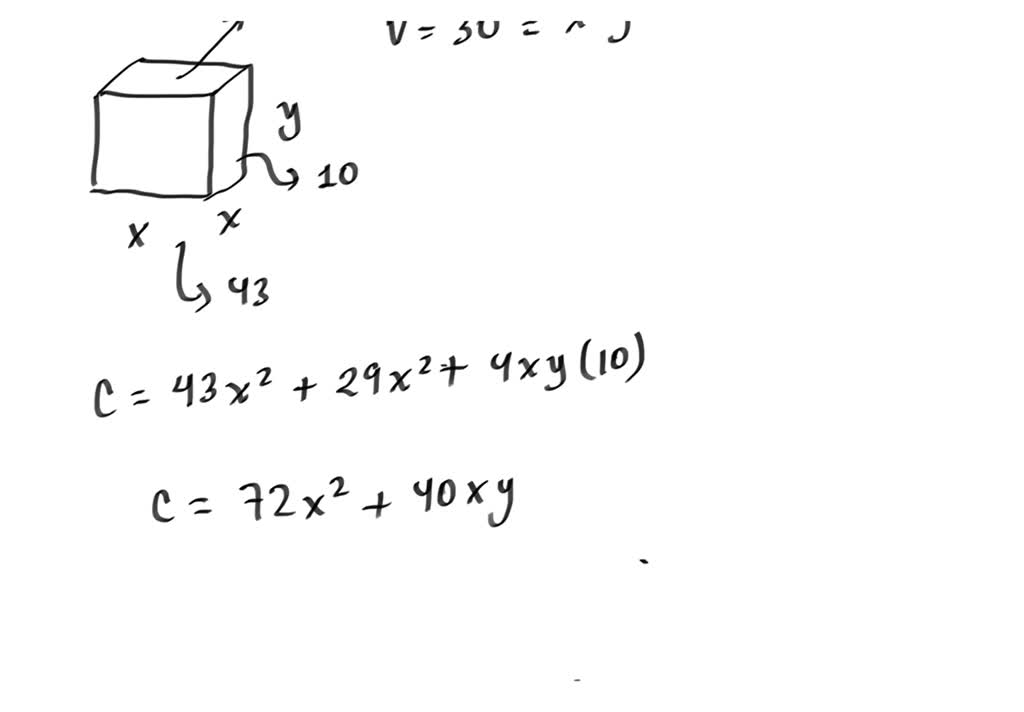 V = 30 =
y
10
x
x
43
C = 43x² + 29x² + 4xy(10)
C = 72x² + 40xy